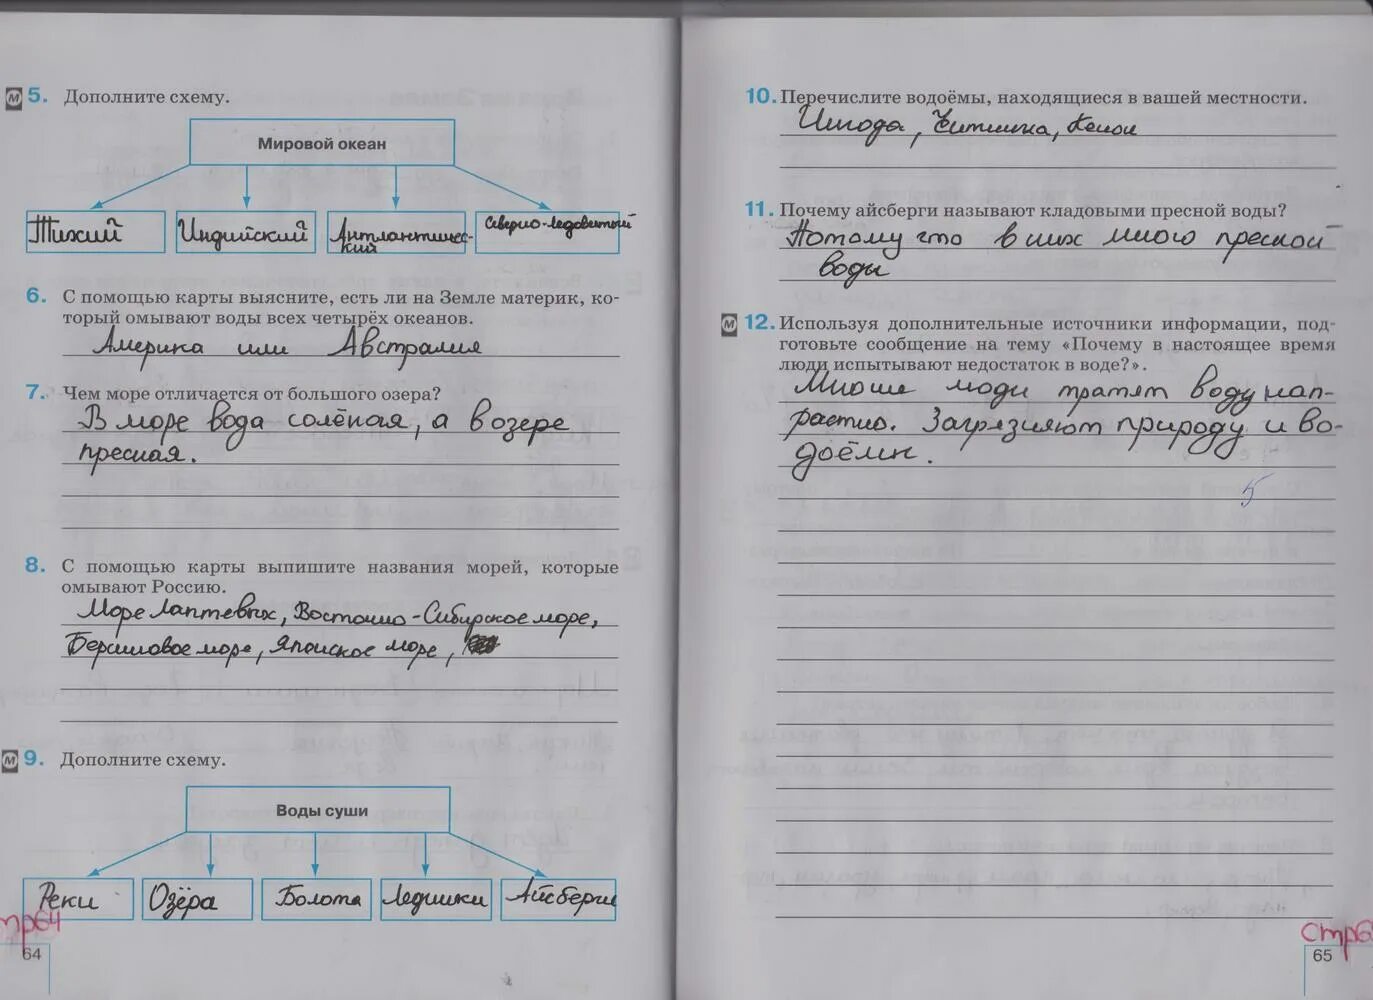 М 5. Дополните схему.
Мировой океан
Тихий
Индийский
Антлантичес-
кий
Северно-ледовитый
6. С помощью карты выясните, есть ли на Земле материк, ко-
торый омывают воды всех четырёх океанов.
Америка или Австралия
7. Чем море отличается от большого озера?
В море вода солёная, а в озере
пресная.
8. С помощью карты выпишите названия морей, которые
омывают Россию.
Море Лаптевых, Восточно-Сибирское море,
Беринговое море, Японское море,
М 9. Дополните схему.
Воды суши
Реки
Озёра
Болота
Ледники
Айсберги
тр64
64
10. Перечислите водоёмы, находящиеся в вашей местности.
Ингода, Читинка, Кенон
11. Почему айсберги называют кладовыми пресной воды?
Потому что в них много пресной
воды
М 12. Используя дополнительные источники информации, под-
готовьте сообщение на тему «Почему в настоящее время
люди испытывают недостаток в воде?».
Многие люди тратят воду нап-
растно. Загрязняют природу и во-
доёмы.
5
стр6
65